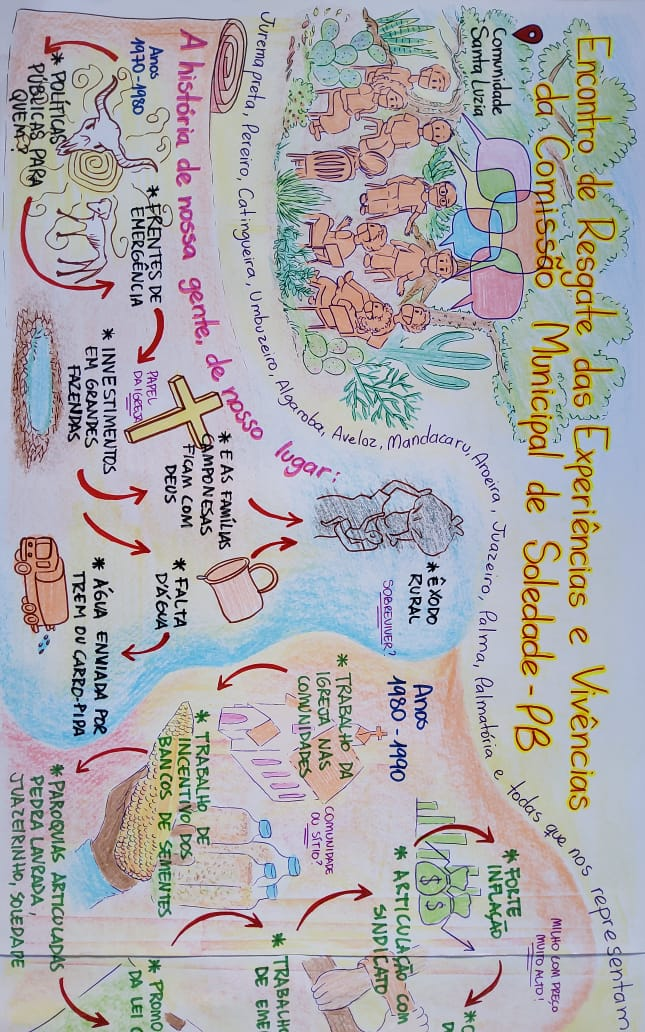 Encontro de Resgate das Experiências e Vivências
da Comissão Municipal de Soledade-PB
Comunidade
Santa Luzia
Jurema preta, Pereiro, Catingueira, Umbuzeiro, Algaroba, Aveloz, Mandacaru, Aroeira, Juazeiro, Palma, Palmatória e todas que nos representam
A história de nossa gente, de nosso lugar:
Anos
1970-1980
* POLÍTICAS
PÚBLICAS PARA
QUEM?
* FRENTES DE
EMERGÊNCIA
* INVESTIMENTOS
EM GRANDES
FAZENDAS
PAPEL
DA IGREJA
* E AS FAMÍLIAS
CAMPONESAS
FICAM COM
DEUS
* FALTA
D'ÁGUA
* ÁGUA ENVIADA POR
TREM OU CARRO-PIPA
* ÊXODO
RURAL
SOBREVIVER?
Anos
1980-1990
* TRABALHO DA
IGREJA NAS
COMUNIDADES
COMUNIDADE
OU SÍTIO?
* TRABALHO DE
INCENTIVO DOS
BANCOS DE SEMENTES
* PAROQUIAS ARTICULADAS
PEDRA LAVRADA,
JUAZEIRINHO, SOLEDADE
* ARTICULAÇÃO COM
SINDICATO
* FORTE
INFLAÇÃO
$ $
MILHO COM PREÇO
MUITO ALTO!
* TRABALH
DE EME
* PROMO
DA LEI